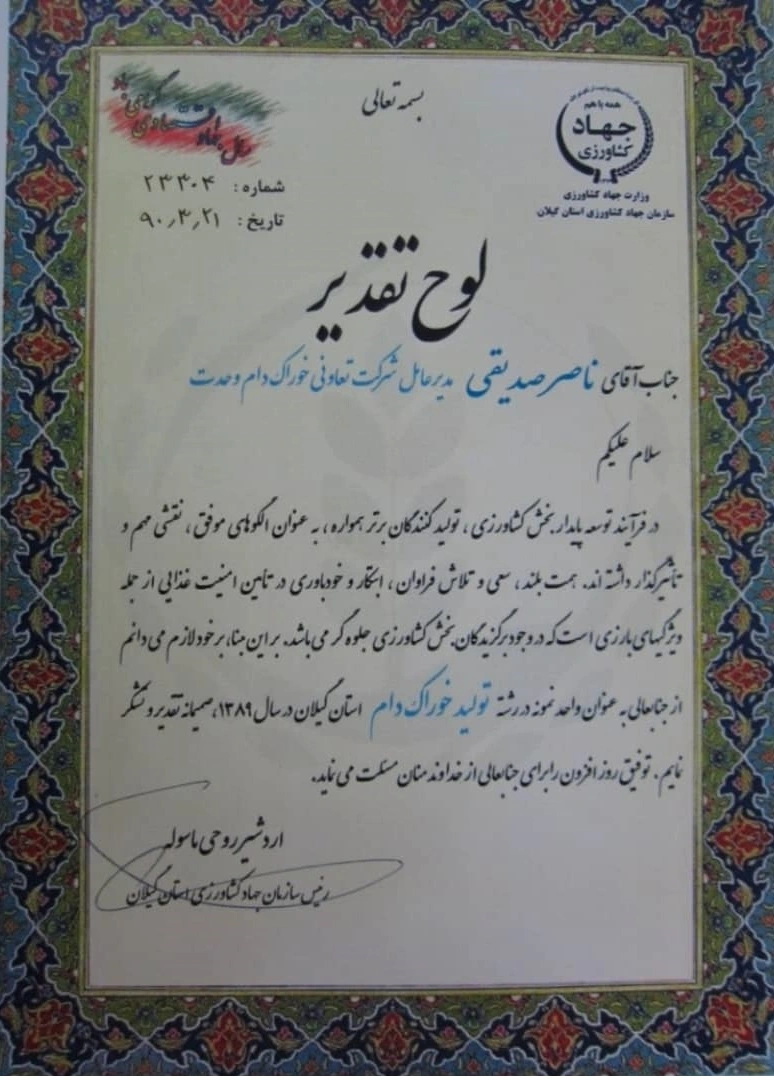 بسمه تعالی
همه با هم
جهاد
کشاورزی
وزارت جهاد کشاورزی
سازمان جهاد کشاورزی استان گیلان
سال جهاد اقتصادی گرامی باد
شماره : ۲۳۳۰۴
تاریخ : ۹۰٫۳٫۲۱
لوح تقدیر
جناب آقای ناصر صدیقی مدیرعامل شرکت تعاونی خوراک دام وحدت
سلام علیکم
در فرآیند توسعه پایدار بخش کشاورزی ، تولید کنندگان برتر همواره ، به عنوان الگوهای موفق ، نقشی مهم و
تأثیرگذار داشته اند. همت بلند ، سعی و تلاش فراوان ، ابتکار و خودباوری در تأمین امنیت غذایی از جمله
ویژگیهای بارزی است که در وجود برگزیدگان بخش کشاورزی جلوه گر می باشد. بر این مبنا، بر خود لازم می دانم
از جنابعالی به عنوان واحد نمونه در رشته تولید خوراک دام استان گیلان در سال ۱۳۸۹، صمیمانه تقدیر و تشکر
نمایم . توفیق روز افزون را برای جنابعالی از خداوند منان مسئلت می نماید.
اردشیر روحی ماسوله
رئیس سازمان جهاد کشاورزی استان گیلان